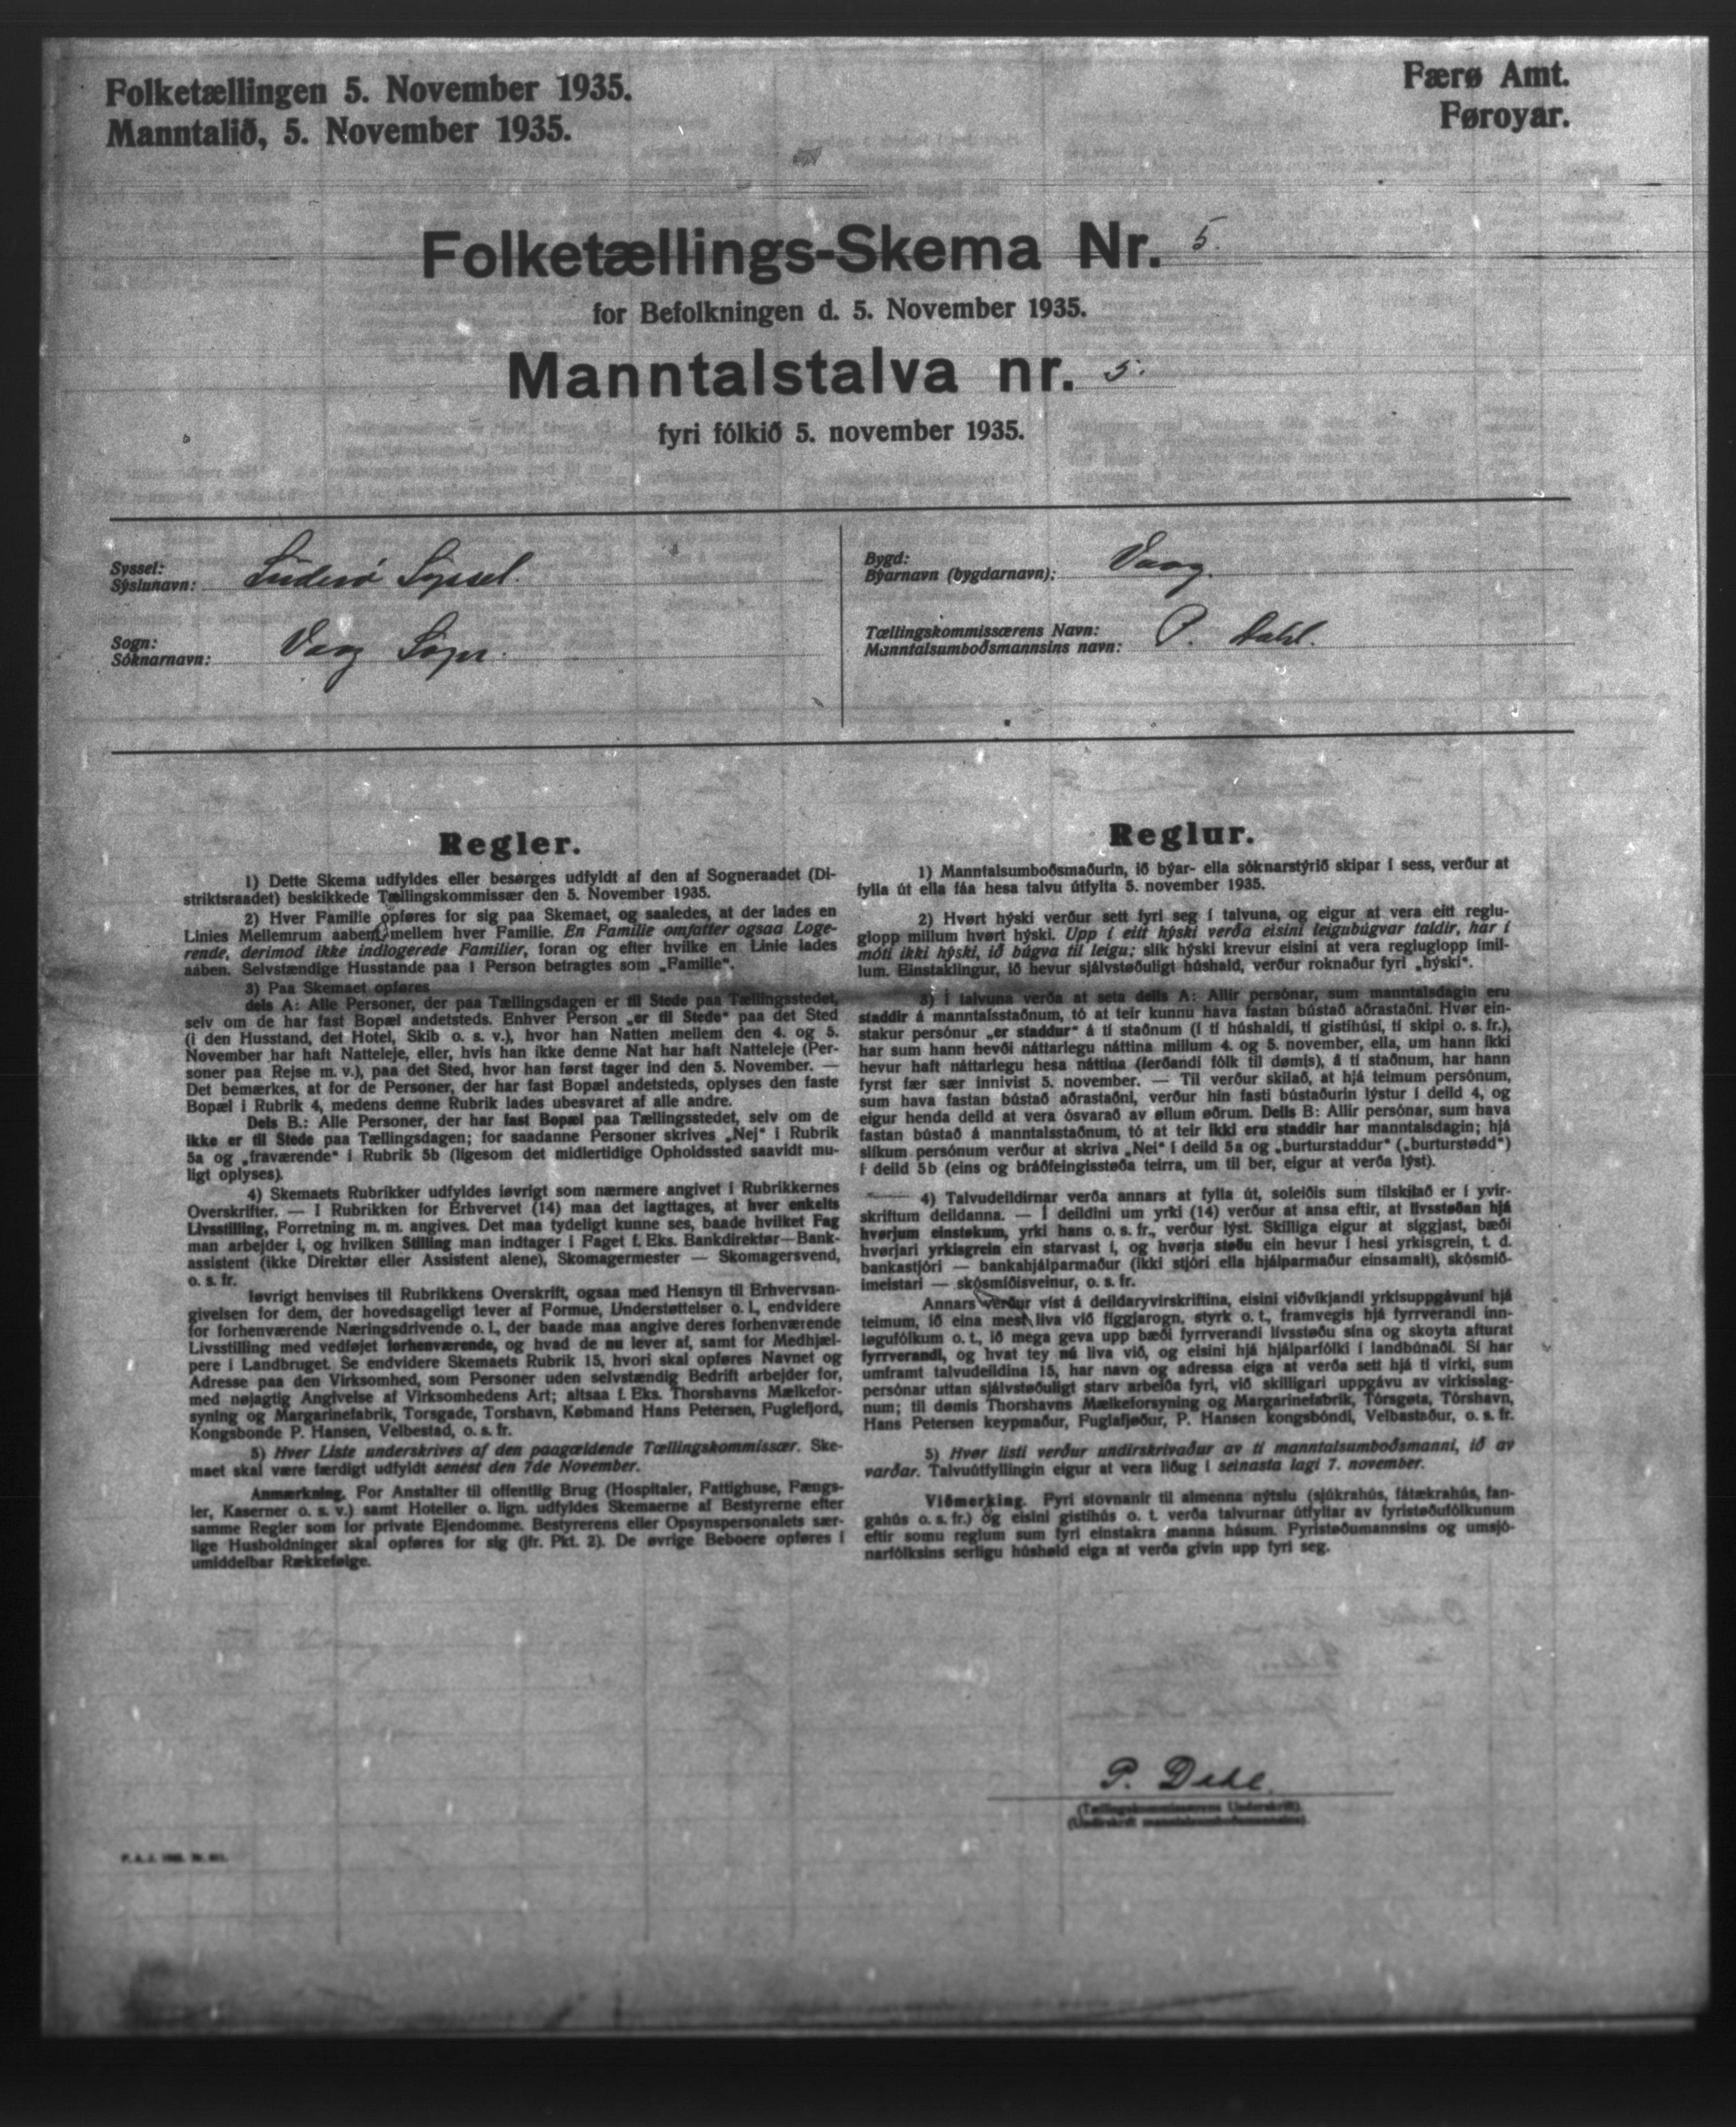 Folketællingen 5. November 1935.
Manntalið, 5. November 1935.
Færø Amt.
Føroyar.
Folketællings-Skema Nr. 5.
for Befolkningen d. 5. November 1935.
Manntalstalva nr. 5.
fyri fólkið 5. november 1935.
Syssel:
Sýslunavn: Suderø Syssel.
Sogn:
Sóknarnavn: Vaag Sogn.
Bygd:
Býarnavn (bygdarnavn): Vaag.
Tællingskommissærens Navn:
Manntalsumboðsmannsins navn: P. Dahl.
Regler.
1) Dette Skema udfyldes eller besørges udfyldt af den af Sogneraadet (Di-
striktsraadet) beskikkede Tællingskommissær den 5. November 1935.
2) Hver Familie opføres for sig paa Skemaet, og saaledes, at der lades en
Linies Mellemrum aabent mellem hver Familie. En Familie omfatter ogsaa Loge-
rende, derimod ikke indlogerede Familier, foran og efter hvilke en Linie lades
aaben. Selvstændige Husstande paa 1 Person betragtes som „Familie“.
3) Paa Skemaet opføres
dels A: Alle Personer, der paa Tællingsdagen er til Stede paa Tællingsstedet,
selv om de har fast Bopæl andetsteds. Enhver Person „er til Stede“ paa det Sted
(i den Husstand, det Hotel, Skib o. s. v.), hvor han Natten mellem den 4. og 5.
November har haft Natteleje, eller, hvis han ikke denne Nat har haft Natteleje (Per-
soner paa Rejse m. v.), paa det Sted, hvor han først tager ind den 5. November. —
Det bemærkes, at for de Personer, der har fast Bopæl andetsteds, oplyses den faste
Bopæl i Rubrik 4, medens denne Rubrik lades ubesvaret af alle andre.
Dels B.: Alle Personer, der har fast Bopæl paa Tællingsstedet, selv om de
ikke er til Stede paa Tællingsdagen; for saadanne Personer skrives „Nej“ i Rubrik
5a og „fraværende“ i Rubrik 5b (ligesom det midlertidige Opholdssted saavidt mu-
ligt oplyses).
4) Skemaets Rubrikker udfyldes iøvrigt som nærmere angivet i Rubrikkernes
Overskrifter. — I Rubrikken for Erhvervet (14) maa det iagttages, at hver enkelts
Livsstilling, Forretning m. m. angives. Det maa tydeligt kunne ses, baade hvilket Fag
man arbejder i, og hvilken Stilling man indtager i Faget f. Eks. Bankdirektør—Bank-
assistent (ikke Direktør eller Assistent alene), Skomagermester — Skomagersvend,
o. s. fr.
Iøvrigt henvises til Rubrikkens Overskrift, ogsaa med Hensyn til Erhvervsan-
givelsen for dem, der hovedsageligt lever af Formue, Understøttelser o. l., endvidere
for forhenværende Næringsdrivende o. l., der baade maa angive deres forhenværende
Livsstilling med vedføjet forhenværende, og hvad de nu lever af, samt for Medhjæl-
pere i Landbruget. Se endvidere Skemaets Rubrik 15, hvori skal opføres Navnet og
Adresse paa den Virksomhed, som Personer uden selvstændig Bedrift arbejder for,
med nøjagtig Angivelse af Virksomhedens Art; altsaa f. Eks. Thorshavns Mælkefor-
syning og Margarinefabrik, Torsgade, Torshavn, Købmand Hans Petersen, Fuglefjord,
Kongsbonde P. Hansen, Velbestad, o. s. fr.
5) Hver Liste underskrives af den paagældende Tællingskommissær. Ske-
maet skal være færdigt udfyldt senest den 7de November.
Anmærkning. For Anstalter til offentlig Brug (Hospitaler, Fattighuse, Fængs-
ler, Kaserner o. s. v.) samt Hoteller o. lign. udfyldes Skemaerne af Bestyrerne efter
samme Regler som for private Ejendomme. Bestyrerens eller Opsynspersonalets sær-
lige Husholdninger skal opføres for sig (jfr. Pkt. 2). De øvrige Beboere opføres i
umiddelbar Rækkefølge.
Reglur.
1) Manntalsumboðsmaðurin, ið býar- ella sóknarstýrið skipar í sess, verður at
fylla út ella fáa hesa talvu útfylta 5. november 1935.
2) Hvørt hýski verður sett fyri seg í talvuna, og eigur at vera eitt reglu-
glopp millum hvørt hýski. Upp í eitt hýski verða eisini leigubúgvar taldir, har í
móti ikki hýski, ið búgva til leigu; slik hýski krevur eisini at vera regluglopp ímil-
lum. Einstaklingur, ið hevur sjálvstøðuligt húshald, verður roknaður fyri „hýski“.
3) Í talvuna verða at seta dells A: Allir persónar, sum manntalsdagin eru
staddir á manntalsstaðnum, tó at teir kunnu hava fastan bústað aðrastaðni. Hvør ein-
stakur persónur „er staddur“ á tí staðnum (í tí húshaldi, tí gistihúsi, tí skipi o. s. fr.),
har sum hann hevði náttarlegu náttina millum 4. og 5. november, ella, um hann ikki
hevur haft náttarlegu hesa náttina (ferðandi fólk til dømis), á tí staðnum, har hann
fyrst fær sær innivist 5. november. — Til verður skilað, at hjá teimum persónum,
sum hava fastan bústað aðrastaðni, verður hin fasti bústaðurin lýstur í deild 4, og
eigur henda deild at vera ósvarað av øllum øðrum. Dells B: Allir persónar, sum hava
fastan bústað á manntalsstaðnum, tó at teir ikki eru staddir har manntalsdagin; hjá
slíkum persónum verður at skriva „Nei“ í deild 5a og „burturstaddur“ („burturstødd“)
í deild 5b (eins og bráðfeingisstøða teirra, um til ber, eigur at verða lýst).
4) Talvudeildirnar verða annars at fylla út, soleiðis sum tilskilað er í yvir-
skriftum deildanna. — Í deildini um yrki (14) verður at ansa eftir, at livsstøðan hjá
hvørjum einstøkum, yrki hans o. s. fr., verður lýst. Skilliga eigur at siggjast, bæði
hvørjari yrkisgrein ein starvast í, og hvørja støðu ein hevur í hesi yrkisgrein, t. d.
bankastjóri — bankahjálparmaður (ikki stjóri ella hjálparmaður einsamalt), skósmið-
imeistari — skósmiðisveinur, o. s. fr.
Annars verður víst á deildaryvirskriftina, eisini viðvíkjandi yrkisuppgávuni hjá
teimum, ið eina mest liva við figgjarogn, styrk o. t., framvegis hjá fyrrverandi inn-
løgufólkum o. t., ið mega geva upp bæði fyrrverandi livsstøðu sína og skoyta afturat
fyrrverandi, og hvat tey nú liva við, og eisini hjá hjálparfólki í landbúnaði. Sí har
umframt talvudeildina 15, har navn og adressa eiga at verða sett hjá tí virki, sum
persónar uttan sjálvstøðuligt starv arbeiða fyri, við skilligari uppgávu av virkisslag-
num; til dømis Thorshavns Mælkeforsyning og Margarinefabrik, Tórsgøta, Tórshavn,
Hans Petersen keypmaður, Fuglafjøður, P. Hansen kongsbóndi, Velbastaður, o. s. fr.
5) Hvør listi verður undirskrivaður av tí manntalsumboðsmanni, ið av
varðar. Talvuútfyllingin eigur at vera liðug í seinasta lagi 7. november.
Viðmerking. Fyri stovnanir til almenna nýtslu (sjúkrahús, fátækrahús, fan-
gahús o. s. fr.) og eisini gistihús o. t. verða talvurnar útfyltar av fyristøðufólkunum
eftir somu reglum sum fyri einstakra manna húsum. Fyristøðumannsins og umsjó-
narfólksins serligu húshøld eiga at verða givin upp fyri seg.
P. Dahl.
(Tællingskommissærens Underskrift).
(Undirskrift manntalsumboðsmannsins).